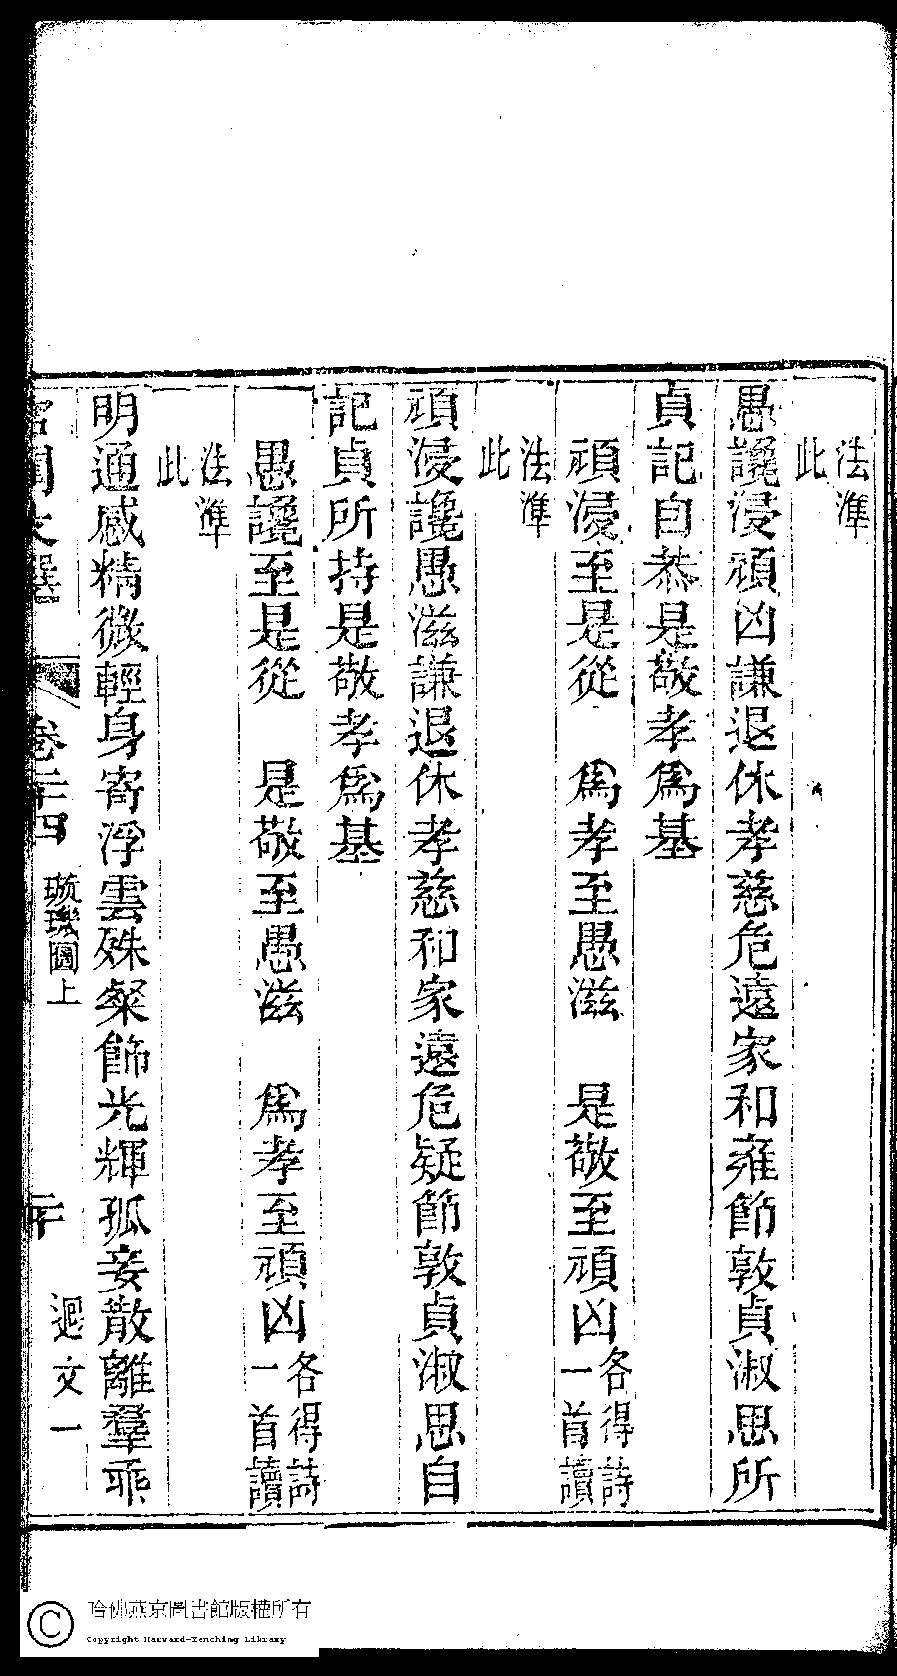 法準
此
愚讒浸頑凶謙退休孝慈危遠家和雍節敦貞淑思所
貞記自恭是敬孝爲基
頑浸至是從　爲孝至愚滋　是敬至頑凶各得詩
一首讀
法準
此
頑浸讒愚滋謙退休孝慈和家遠危疑節敦貞淑思自
記貞所持是敬孝爲基
愚讒至是從　是敬至愚滋　爲孝至頑凶各得詩
一首讀
法準
此
明通感精微輕身寄浮雲殊粲飾光輝孤妾散離羣乖
宮閨文選　卷二十四　璇璣圖上　二十　迴文一
哈佛燕京圖書館版權所有
Copyright Harvard-Yenching Library